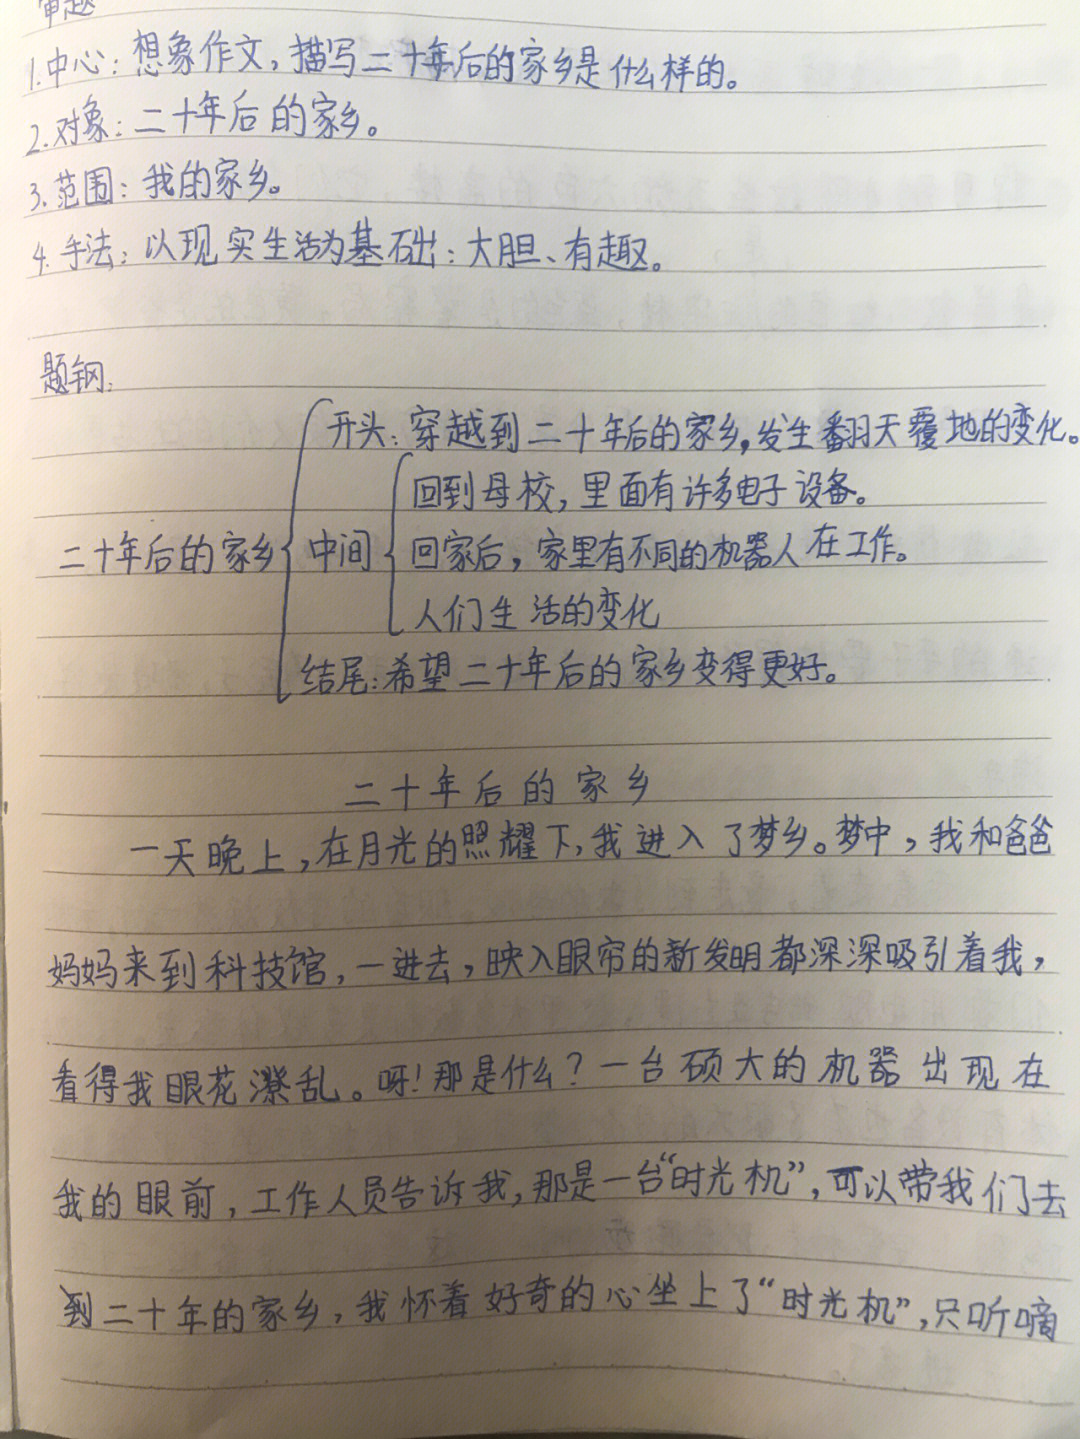 审题
1.中心：想象作文，描写二十年后的家乡是什么样的。
2.对象：二十年后的家乡。
3.范围：我的家乡。
4.手法：以现实生活为基础：大胆、有趣。
题钢：
开头：穿越到二十年后的家乡，发生翻天覆地的变化。
回到母校，里面有许多电子设备。
二十年后的家乡 中间 回家后，家里有不同的机器人在工作。
人们生活的变化
结尾：希望二十年后的家乡变得更好。
二十年后的家乡
一天晚上，在月光的照耀下，我进入了梦乡。梦中，我和爸爸
妈妈来到科技馆，一进去，映入眼帘的新发明都深深吸引着我，
看得我眼花潦乱。呀！那是什么？一台硕大的机器出现在
我的眼前，工作人员告诉我，那是一台“时光机”，可以带我们去
到二十年的家乡，我怀着好奇的心坐上了“时光机”，只听嘀